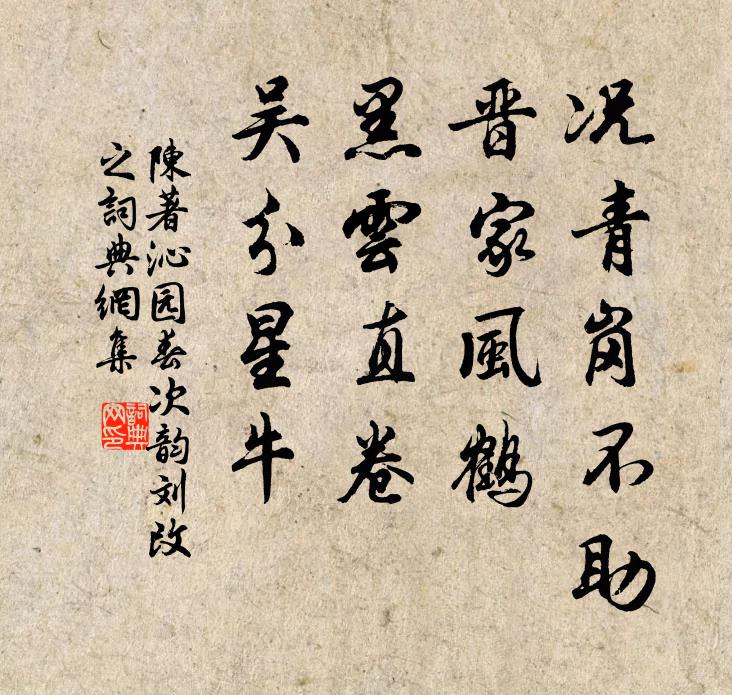 况青岗不助
晋家風鹤
黑雲直卷
吴分星牛
陳著沁园春次韵刘改
之詞典網集
詞典
网印